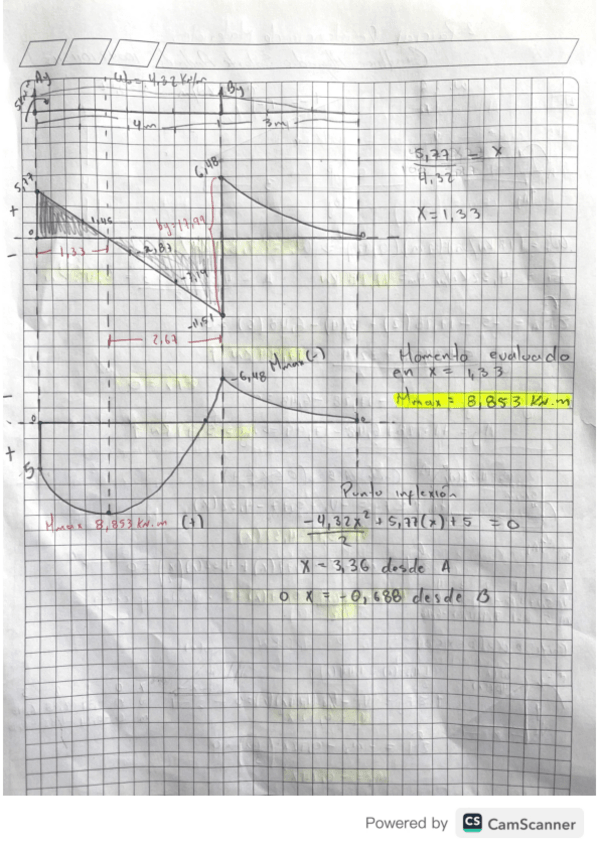 Ay
Wo = 4,32 KN/m
By
4m
3m
5,77
6,48
5,77 = x
4,32
X = 1,33
+
1,45
by=17,99
0
0
1,33
-2,87
-
-7,19
-11,51
2,67
-6,48 Mmax (-)
Momento evaluado
en x = 1,33
Mmax = 8,853 KN.m
-
0
0
+
5
Mmax 8,853 KN.m (+)
Punto inflexión
-4,32x² + 5,77(x) + 5 = 0
2
X = 3,36 desde A
o x = -0,688 desde B
Powered by CS CamScanner